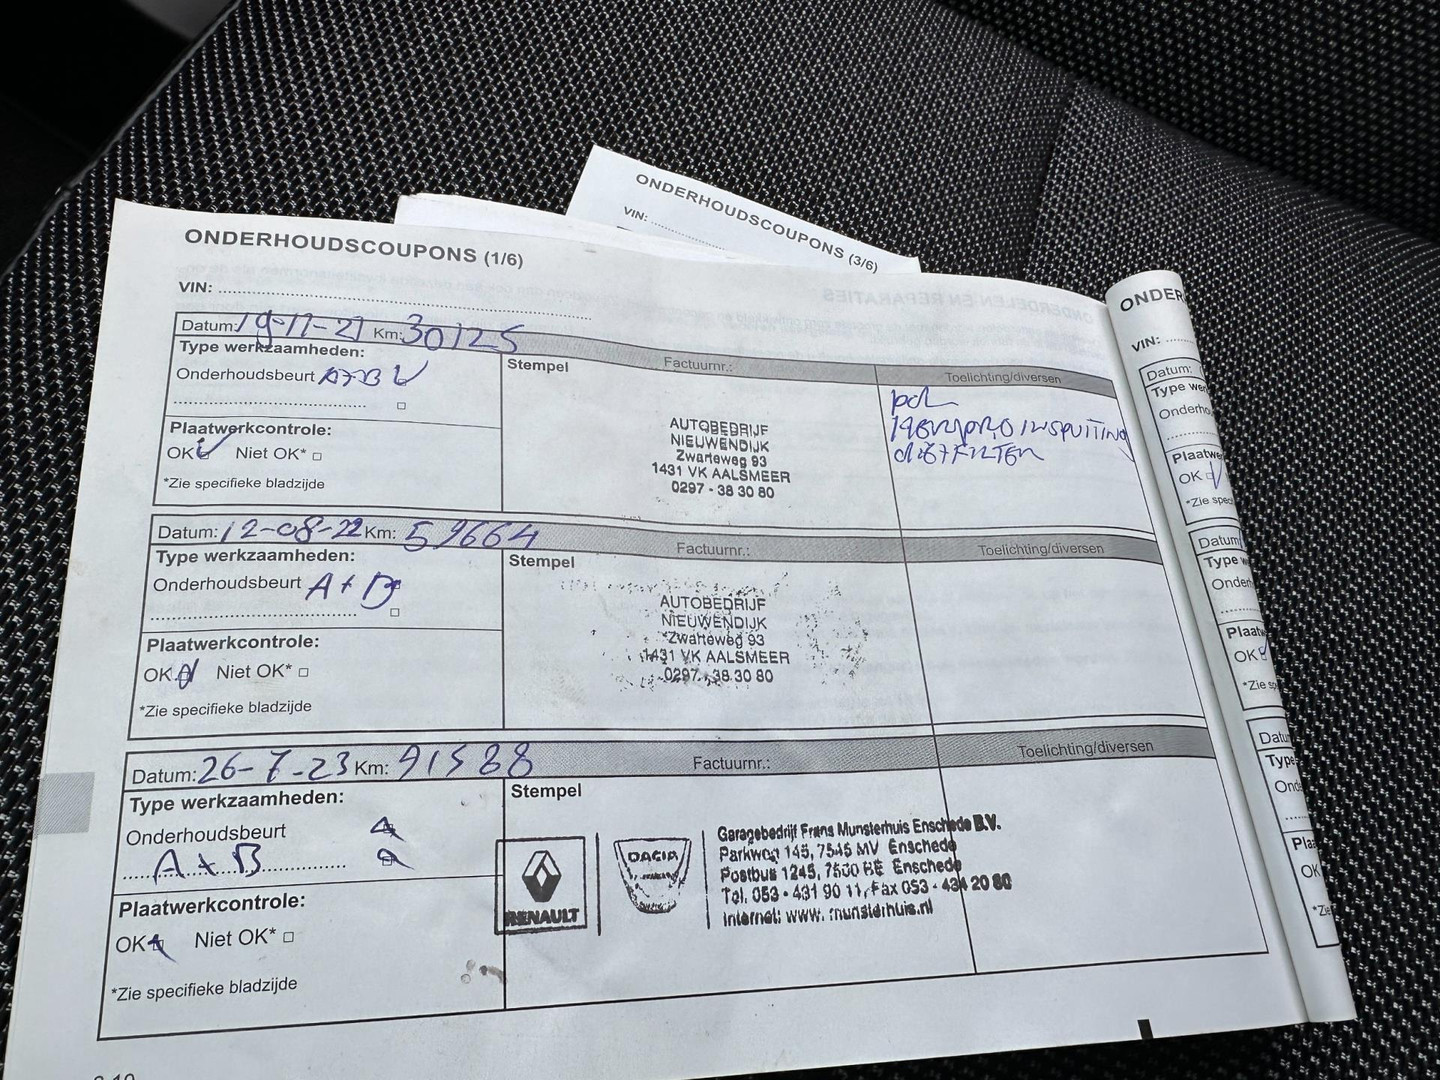 ONDERHOUDSCOUPONS (3/6)
VIN:
ONDERHOUDSCOUPONS (1/6)
VIN:
Datum: 19-11-21 Km: 30125
Factuurnr.:
Toelichting/diversen
Type werkzaamheden:
Stempel
Onderhoudsbeurt A+B
Plaatwerkcontrole:
OK Niet OK*
*Zie specifieke bladzijde
AUTOBEDRIJF
NIEUWENDIJK
Zwarteweg 93
1431 VK AALSMEER
0297 - 38 30 80
INSPUITING
Datum: 12-08-22 Km: 59664
Factuurnr.:
Toelichting/diversen
Type werkzaamheden:
Stempel
Onderhoudsbeurt A+B
Plaatwerkcontrole:
OK Niet OK*
*Zie specifieke bladzijde
AUTOBEDRIJF
NIEUWENDIJK
Zwarteweg 93
1431 VK AALSMEER
0297 - 38 30 80
Datum: 26-7-23 Km: 91588
Factuurnr.:
Toelichting/diversen
Type werkzaamheden:
Stempel
Onderhoudsbeurt
A+B
Plaatwerkcontrole:
OK Niet OK*
*Zie specifieke bladzijde
RENAULT
DACIA
Garagebedrijf Frans Munsterhuis Enschede B.V.
Parkweg 145, 7545 MV Enschede
Postbus 1245, 7500 BE Enschede
Tel. 053 - 431 90 11, Fax 053 - 434 20 80
Internet: www.munsterhuis.nl
ONDER
VIN:
Datum:
Type we
Onderho
Plaatwe
OK
*Zie spec
Datum
Type w
Onder
Plaat
OK
*Zie sp
Datu
Type
Ond
Pla
OK
*Zie